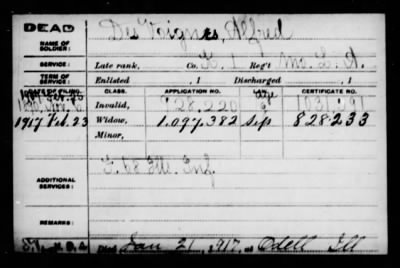 DEAD
NAME OF SOLDIER: Des Voignes, Alfred
SERVICE: Late rank, Co. K, 1 Reg't Mo. L. A.
TERM OF SERVICE: Enlisted , 1 Discharged , 1
DATE OF FILING. CLASS. APPLICATION NO. LAW. CERTIFICATE NO.
Invalid, 928,220
1917 Feb. 23 Widow, 1.097.382 828.233
Minor,
ADDITIONAL SERVICES: F. 68 Ill. Inf.
REMARKS:
Died Jan 21, 1917, at Odell Ill